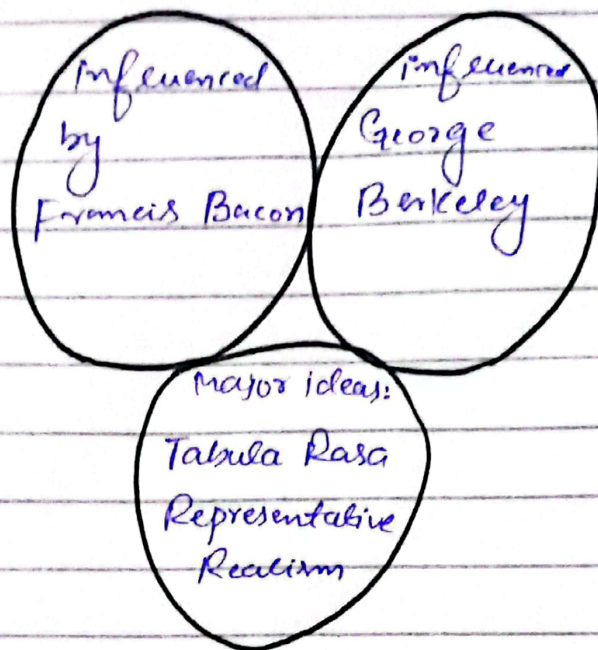 influenced
by
Francis Bacon
influenced
George
Berkeley
Major ideas:
Tabula Rasa
Representative
Realism